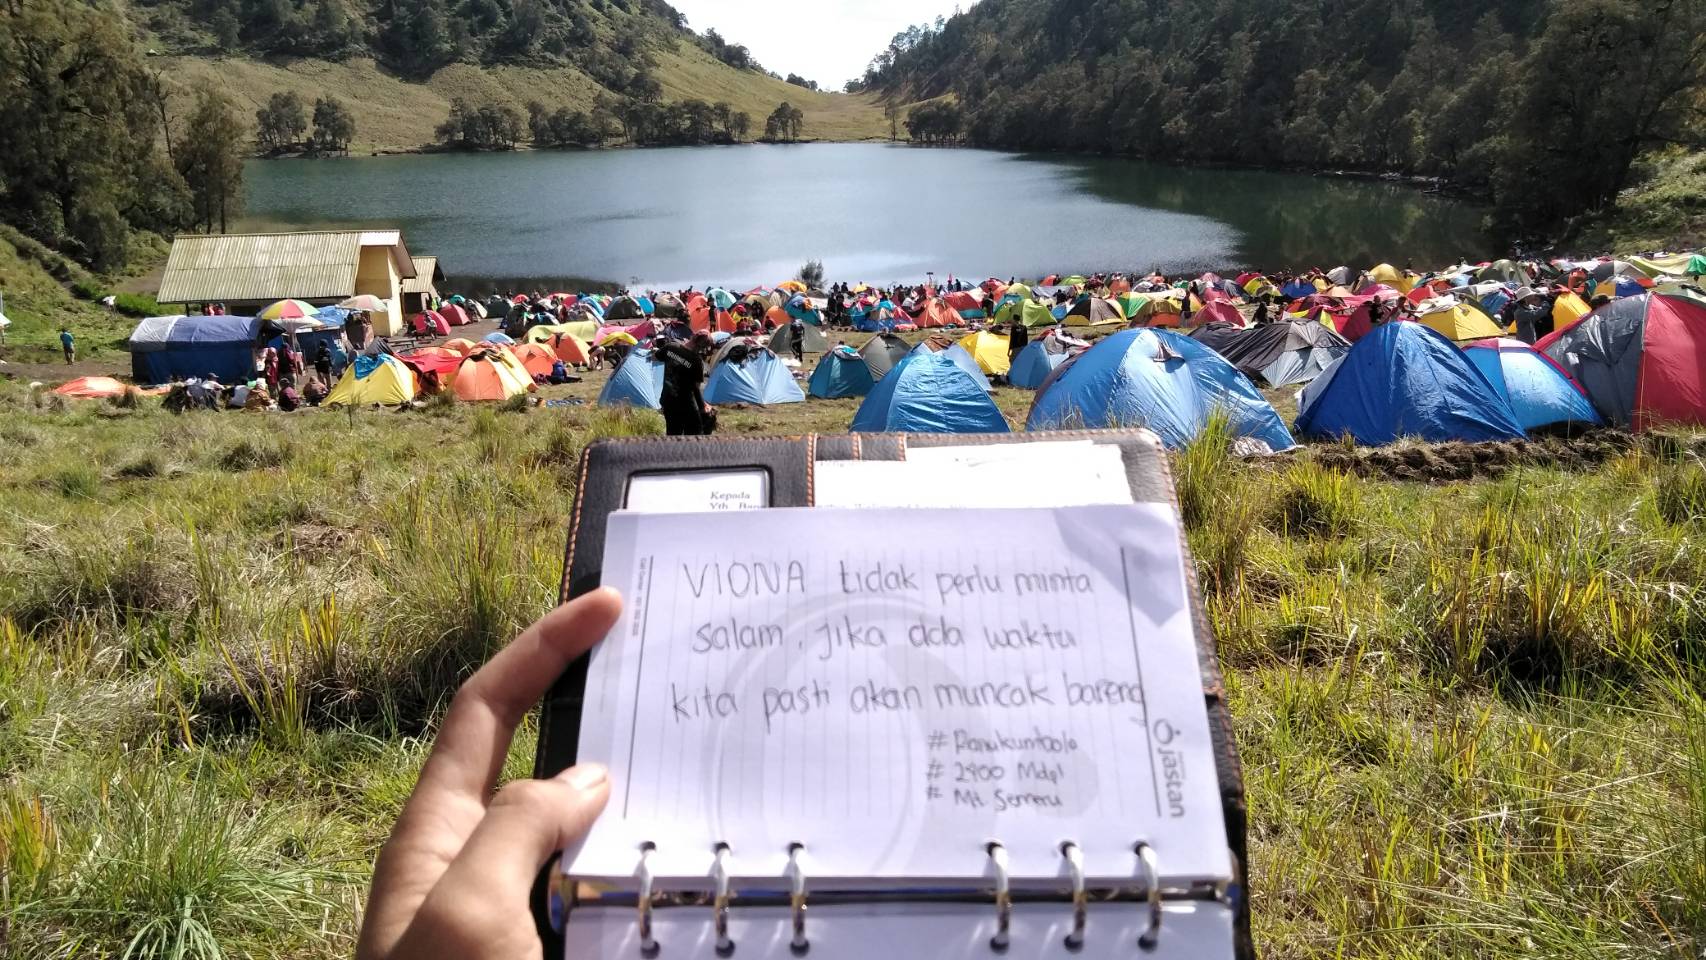 Kepada
Yth.
VIONA tidak perlu minta
salam, jika ada waktu
kita pasti akan muncak bareng
# Ranukumbolo
# 2400 Mdpl
# Mt. Semeru
jastan